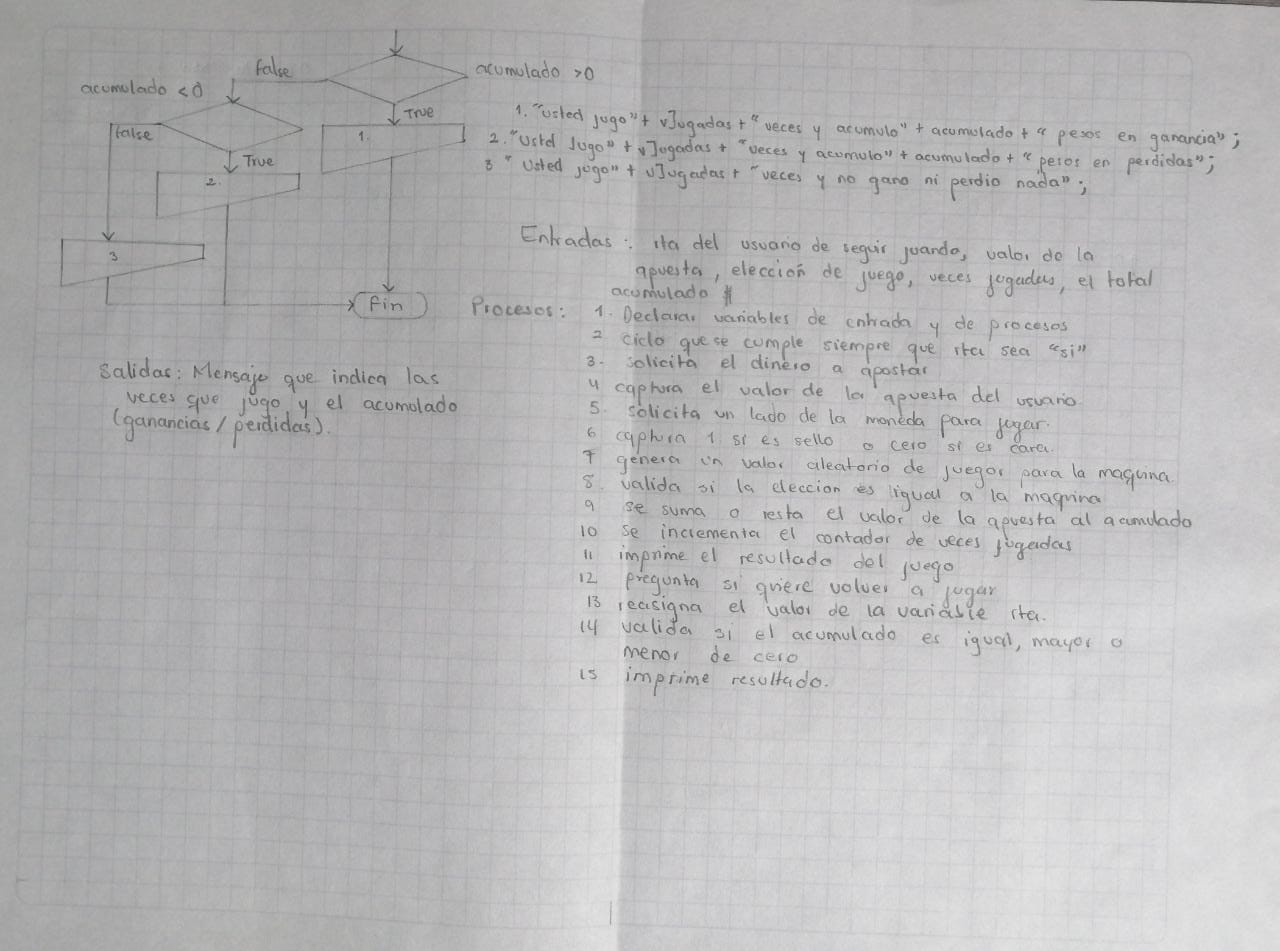 acumulado >0
False
acumulado <0
True
False
1.
True
2.
3
Fin
1. "usted jugo" + vJugadas + " veces y acumulo" + acumulado + " pesos en ganancia";
2. "Ustd Jugo" + vJugadas + "veces y acumulo" + acumulado + " pesos en perdidas";
3 " Usted jugo" + vJugadas + "veces y no gano ni perdio nada";
Entradas: rta del usuario de seguir juando, valor de la
apuesta, elección de juego, veces jugadas, el total
acumulado
Procesos: 1. Declarar variables de entrada y de procesos
2 ciclo que se cumple siempre que rta sea "si"
3. solicita el dinero a apostar
4 captura el valor de la apuesta del usuario
5. solicita un lado de la moneda para jugar.
6 captura 1 si es sello o cero si es cara.
7 genera un valor aleatorio de juegor para la maquina.
8. valida si la eleccion es igual a la maquina
9 se suma o resta el valor de la apuesta al acumulado
10 se incrementa el contador de veces jugadas
11 imprime el resultado del juego
12 pregunta si quiere volver a jugar
13 reasigna el valor de la variable rta.
14 valida si el acumulado es igual, mayor o
menor de cero
15 imprime resultado.
Salidas: Mensaje que indica las
veces que jugo y el acumulado
(ganancias / perdidas).